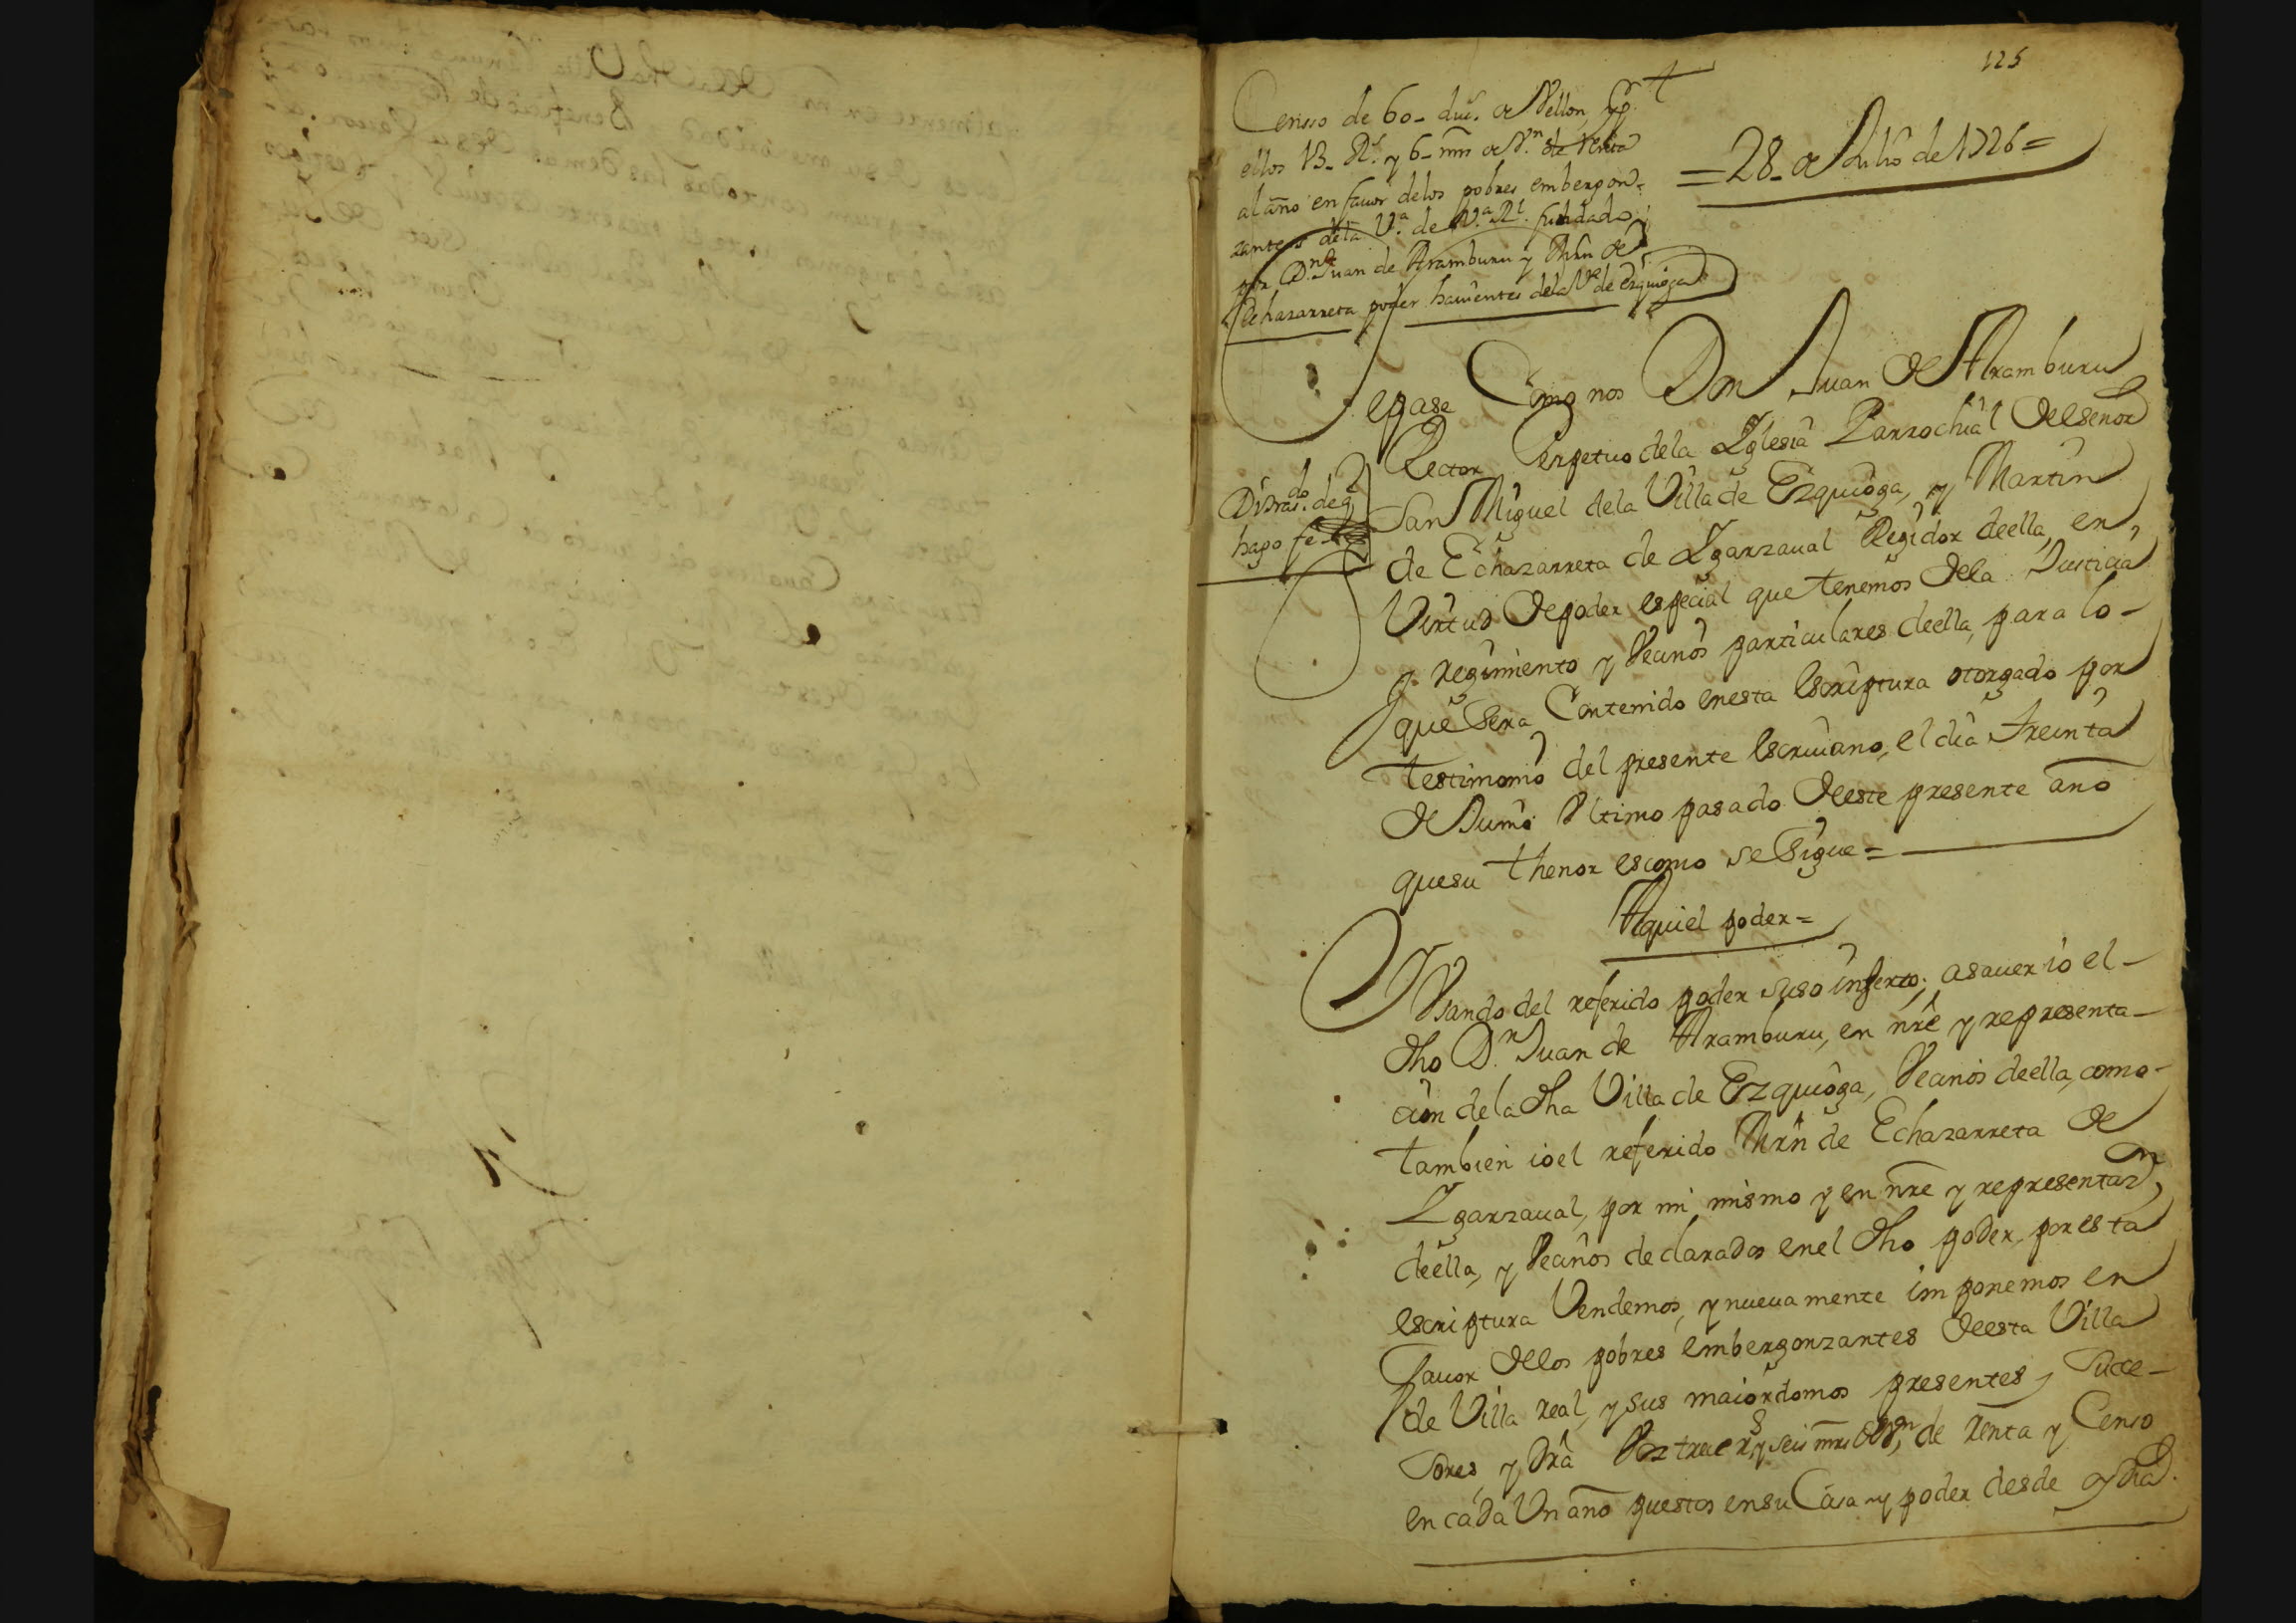 125
Censso de 60_ du.s de Vellon, y p.r
ellos 13_ R.s y 6_ mrs de V.n de renta
al año en fauor delos pobres embergon=
zantes dela V.a de V.a R.l fundado
por D.n Juan de Aramburu y Mrn de
Echazarreta poder hauientes dela V.a de Ezquioga
= 28_ de Julio de 1726 =
Sepase Como nos Don Juan de Aramburu
Rector Perpetuo dela Yglesia Parrochial del señor
San Miguel dela Villa de Ezquioga, y Martin
de Echazarreta de Ygarzaual Regidor deella, en
Virtud de poder especial que tenemos dela Justicia
y regimiento y Vecinos particulares deella, para lo-
que Sera Contenido enesta escriptura otorgado por
testimonio del presente escriuano, el dia treinta
de Junio Vltimo pasado deeste presente año
quesu thenor escomo se Sigue =
hago fe
Aqui el poder =
Vsando del referido poder suso inserto; asauer io el-
dho D.n Juan de Aramburu, en nre y representa-
cion dela dha Villa de Ezquioga, Vecinos deella, como-
tambien io el referido Mrn de Echazarreta de
Ygarzaual, por mi mismo y en nre y representaz.n
deella, y Vecinos declarados enel dho poder, por esta
escriptura Vendemos, y nueuamente imponemos en
fauor delos pobres embergonzantes deesta Villa
de Villa real, y sus maiordomos presentes, y Succe-
sores, y dra Voz trece r.s y seis mrs de V.n de renta y Censo
en cada Un año puestos ensu Casa y poder desde oy dia